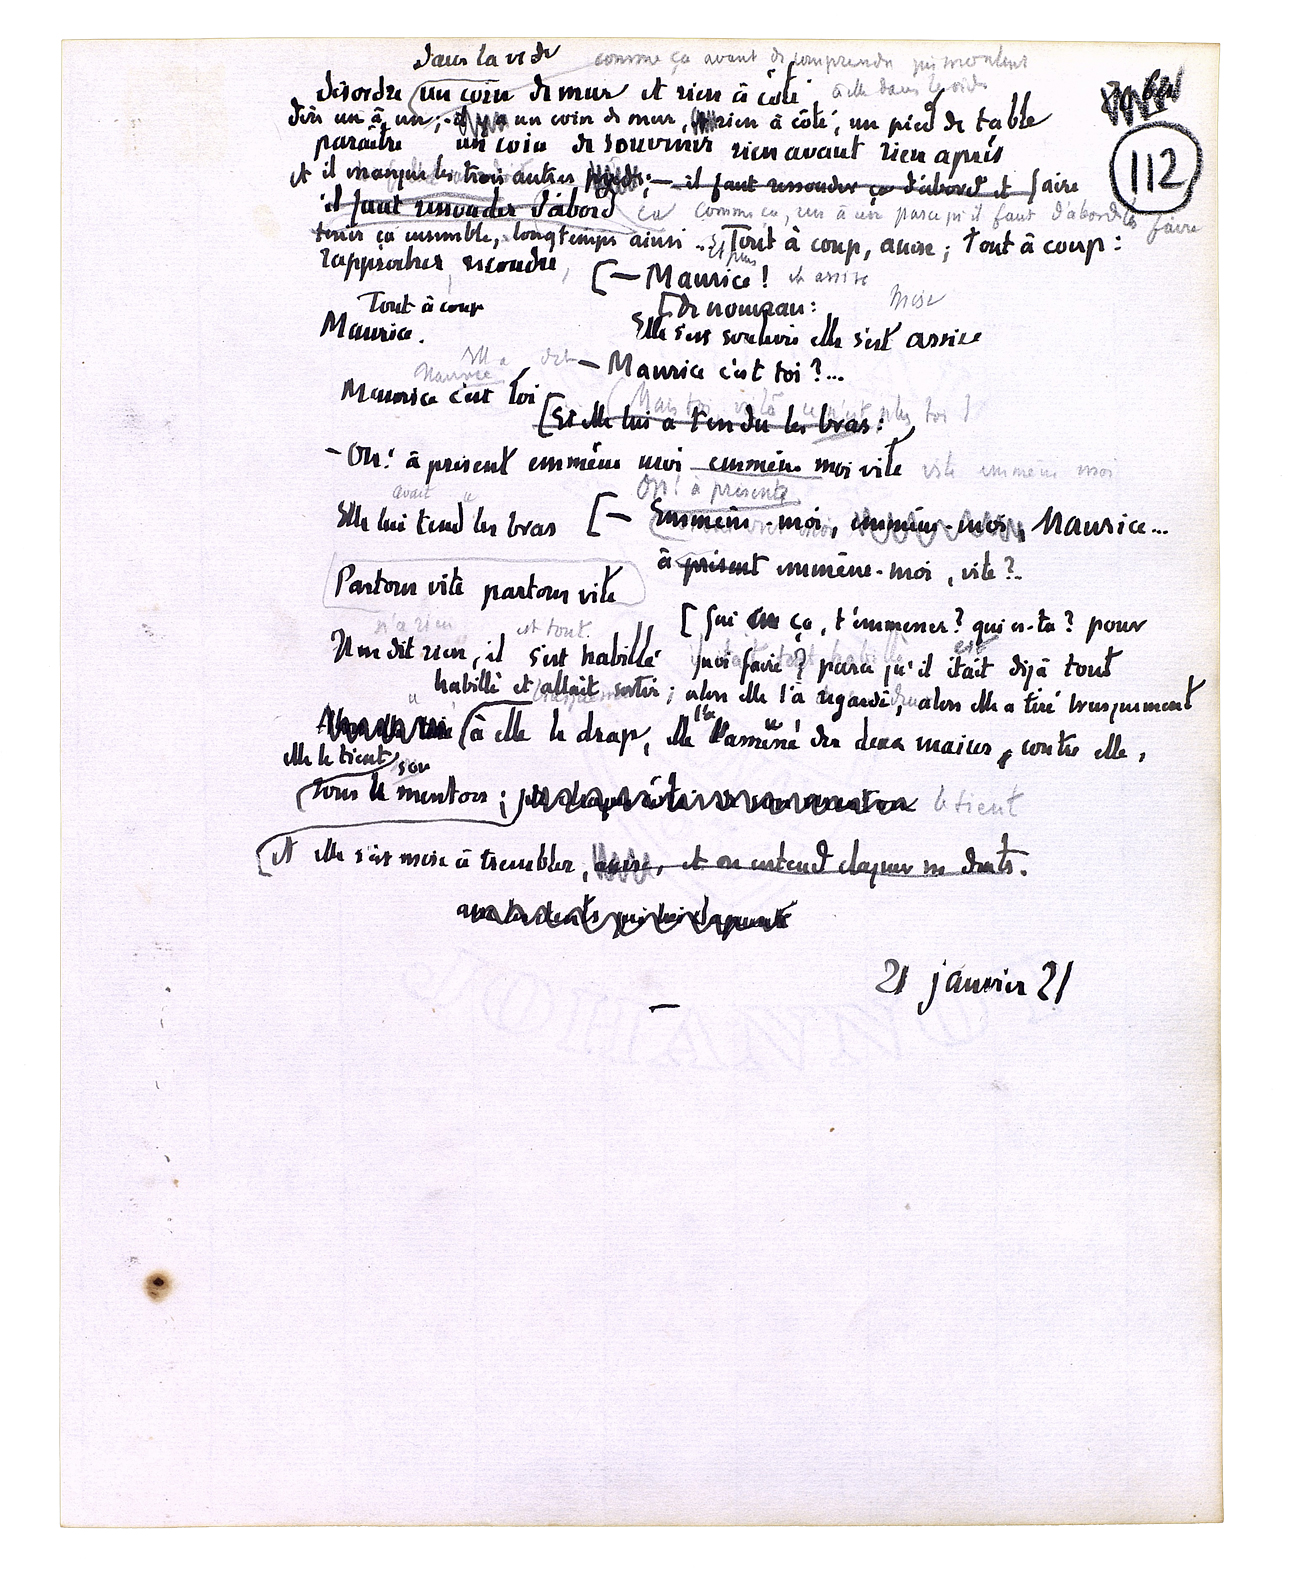 dans la vide comme ça avant de comprendre qui montent
désordre un coin de mur et rien à côté à elle dans le vide
112
un à un ; un coin de mur, rien à côté, un pied de table
paraître un coin de souvenir rien avant rien après
et il manque les trois autres pieds ; — il faut ressouder ça d'abord et faire
il faut ressouder d'abord ça comme ça, un à un parce qu'il faut d'abord les faire
tenir ça ensemble, longtemps ainsi .. Et puis Tout à coup, assise ; Tout à coup :
rapprocher, ressouder,
[— Maurice ! et assise
Tout à coup [De nouveau : mise
Maurice. Elle s'est soulevée elle s'est assise
Elle a dit — Maurice c'est toi ?...
Maurice
Maurice c'est toi (Mais toi, voilà ce n'est plus toi)
[Et elle lui a tendu les bras :
— Oh ! à présent emmène moi emmène moi vite vite emmène moi
avait Oh ! à présent
Elle lui tend les bras [— Emmène-moi, emmène-moi, Maurice...
à présent emmène-moi, vite ?..
Partons vite partons vite
[Qui ça, t'emmener ? qui es-tu ? pour
n'a rien est tout
Il ne dit rien, il s'est habillé quoi faire ? parce qu'il était déjà tout est
habillé et allait sortir ; alors elle l'a regardé, alors elle a tiré brusquement
à elle le drap, elle l'a amené des deux mains, contre elle,
elle le tient son
sous le menton ; le tient
et elle s'est mise à trembler, assise, et on entend claquer ses dents.
avec les dents qui lui claquent
21 janvier 21
—